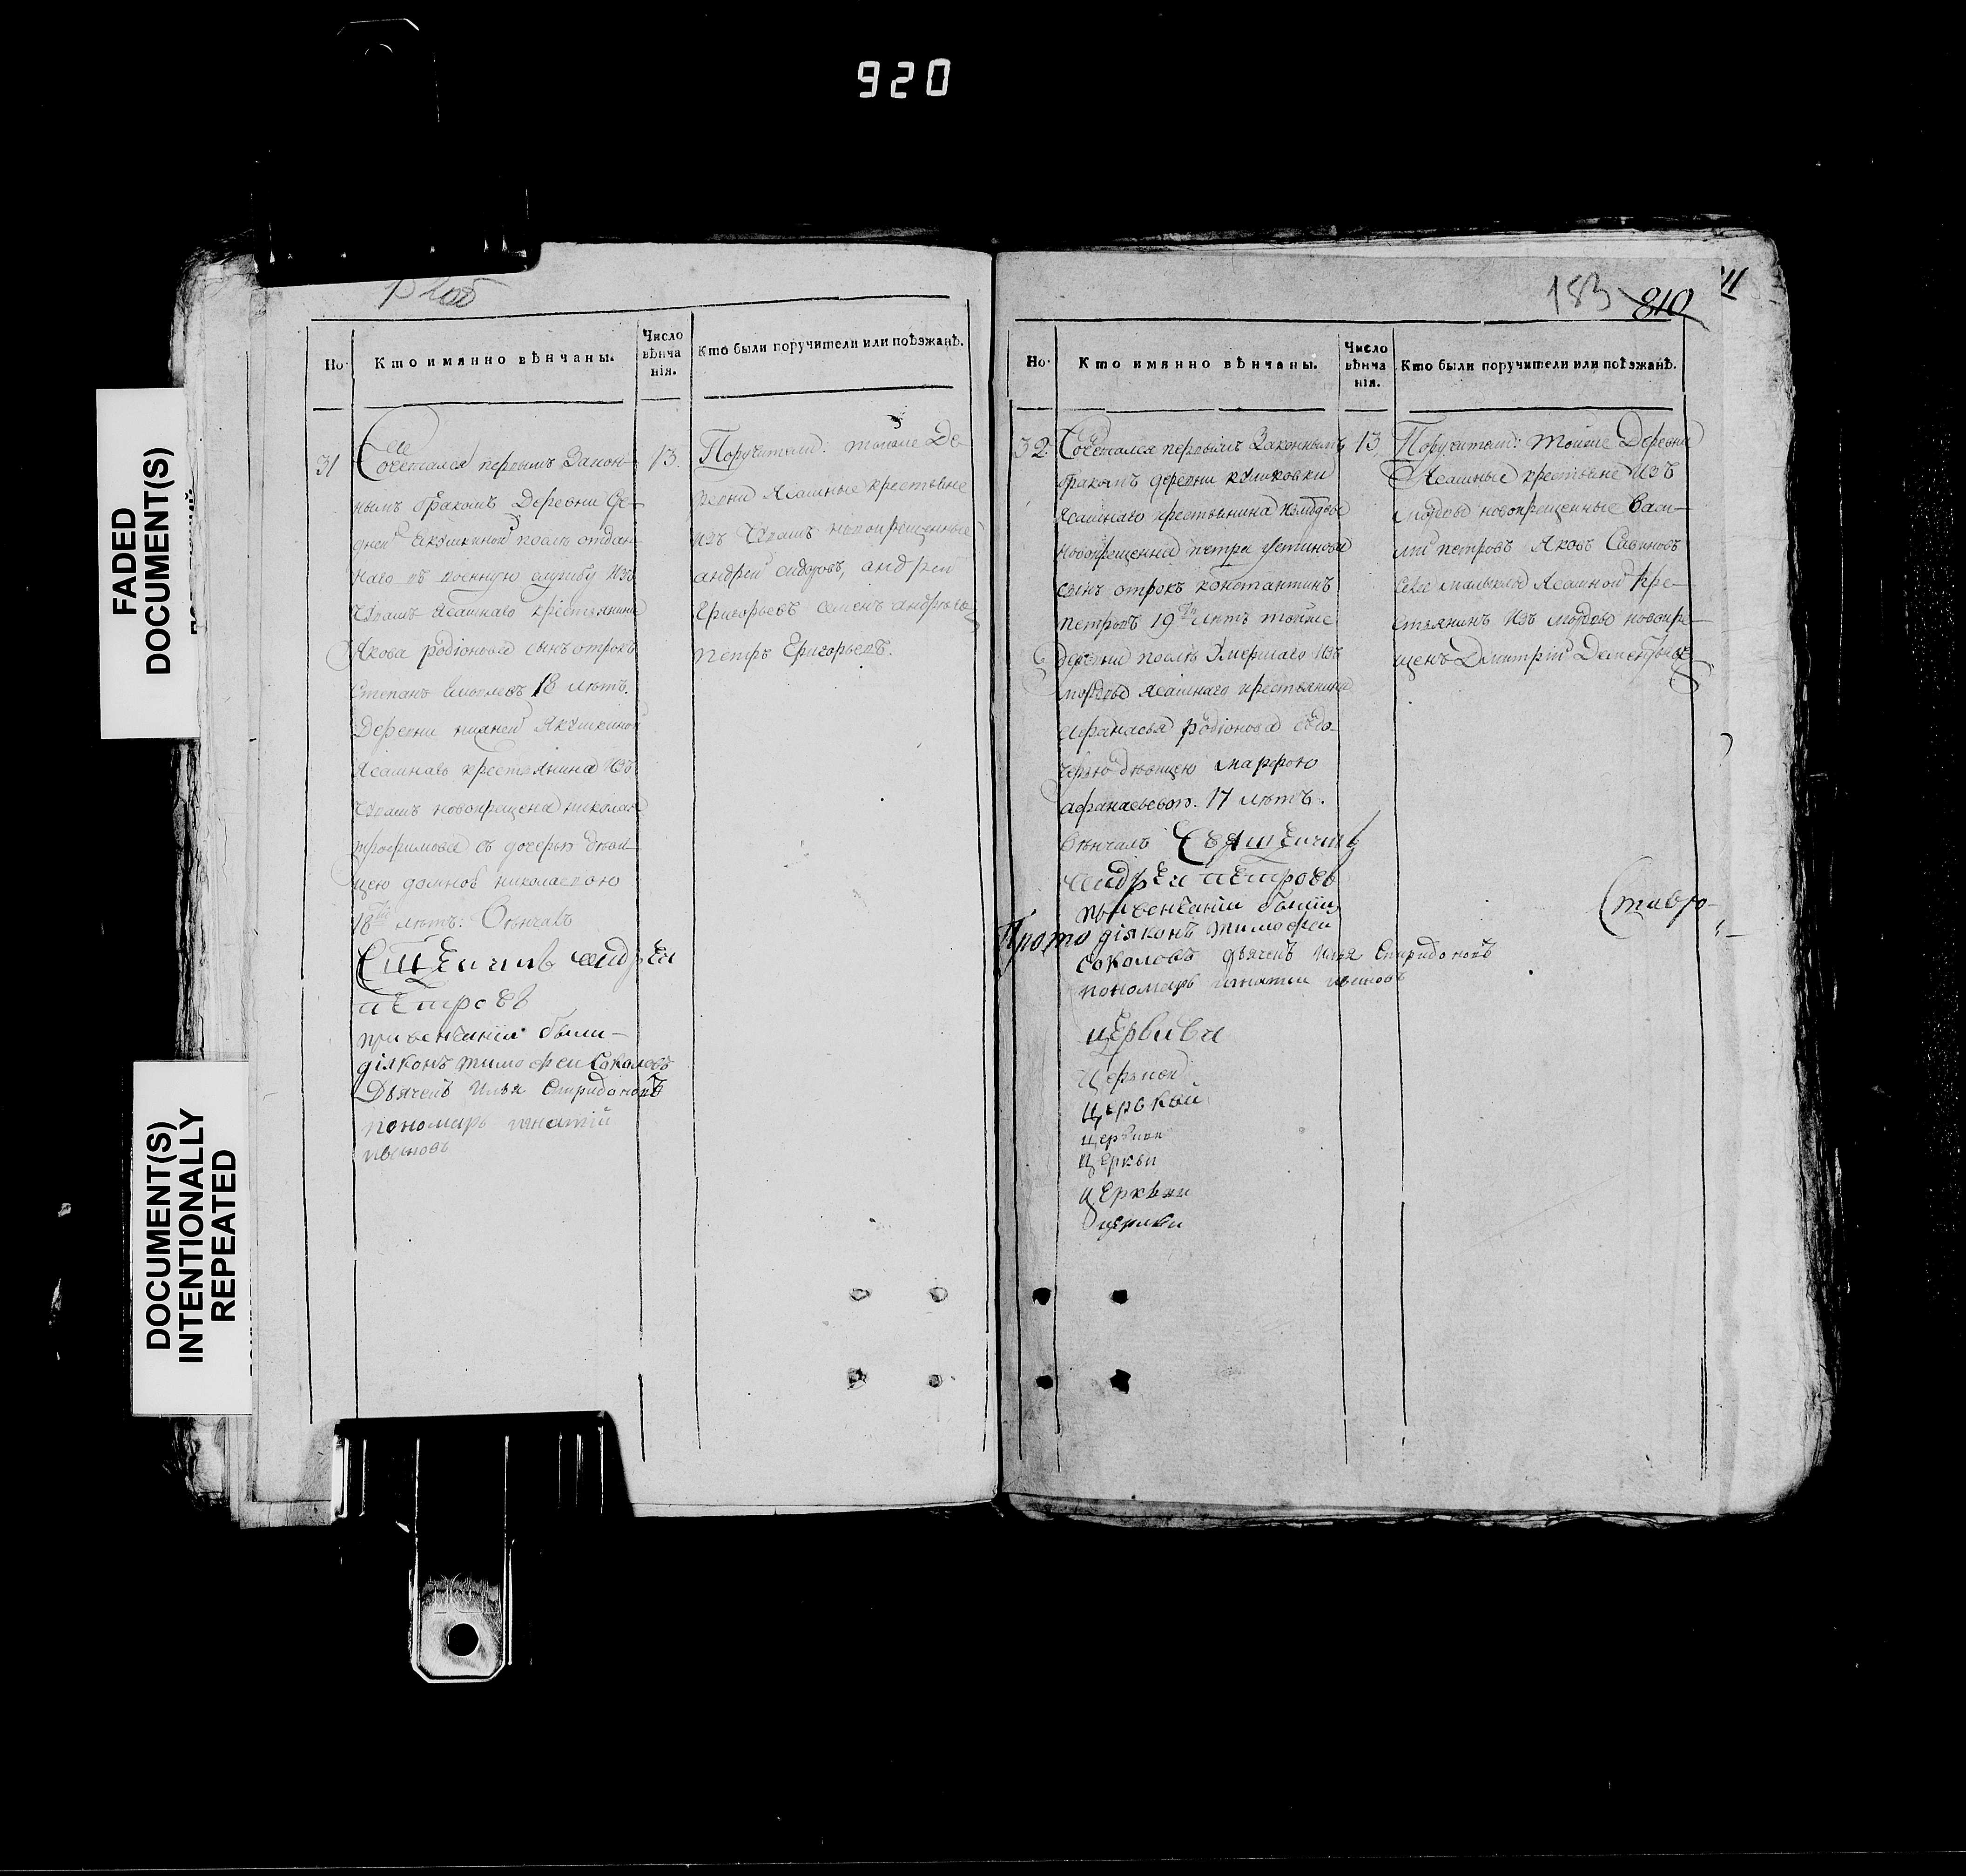 920
FADED
DOCUMENT(S)
DOCUMENT(S)
INTENTIONALLY
REPEATED
Но
Кто имянно вѣнчаны.
Число
вѣнча
нія.
Кто были поручители или поѣзжанѣ.
31
Сочетался первымъ закон-
нымъ бракомъ деревни Сре-
дней Якушкиной послѣ отдан-
наго въ военную службу изъ
Чувашъ ясашнаго крестьянина
Якова родіонова сынъ отрокъ
Степанъ 18 лѣтъ.
Деревни нижней Якушкиной
Ясашнаго крестьянина изъ
Чувашъ новокрещена николая
трофимова съ дочерью дѣви-
цею домною николаевою
18 лѣтъ: Вѣнчалъ
Сщенникъ андрей
петровъ
при венчаніи были
діяконъ тимофеи Соколовъ
Дьячекъ илья Спиридоновъ
пономарь игнатій
ивановъ
13.
Поручители: тойже де-
ревни Ясашные крестьяне
изъ Чувашъ новокрещенные
андрей сидоровъ, андрей
Григорьевъ семенъ андреевъ
петръ Григорьевъ.
183
810
Но
Кто имянно вѣнчаны.
Число
вѣнча
нія.
Кто были поручители или поѣзжанѣ.
32
Сочетался первымъ законнымъ
бракомъ деревни куликовки
Ясашнаго крестьянина измордвы
новокрещена петра устинова
сынъ отрокъ константинъ
петровъ 19 лѣтъ тойже
деревни послѣ умершаго изъ
мордвы ясашнаго крестьянина
афанасья родіонова съ до-
черью дѣвицею марфою
афанасьевою. 17 лѣтъ.
вѣнчалъ Священникъ
андрей петровъ
при венчаніи были
діяконъ тимофеи
Соколовъ дьячекъ илья Спиридоновъ
пономарь игнатіи ивановъ
13
Поручители: тойже деревни
Ясашные крестьяне изъ
мордвы новокрещенные васи-
лій петровъ яковъ Савиновъ
ясашной кре-
стьянинъ изъ мордвы новокре-
щенъ Дмитрій Дементьевъ
Прото
Ставро-
церкви
церкви